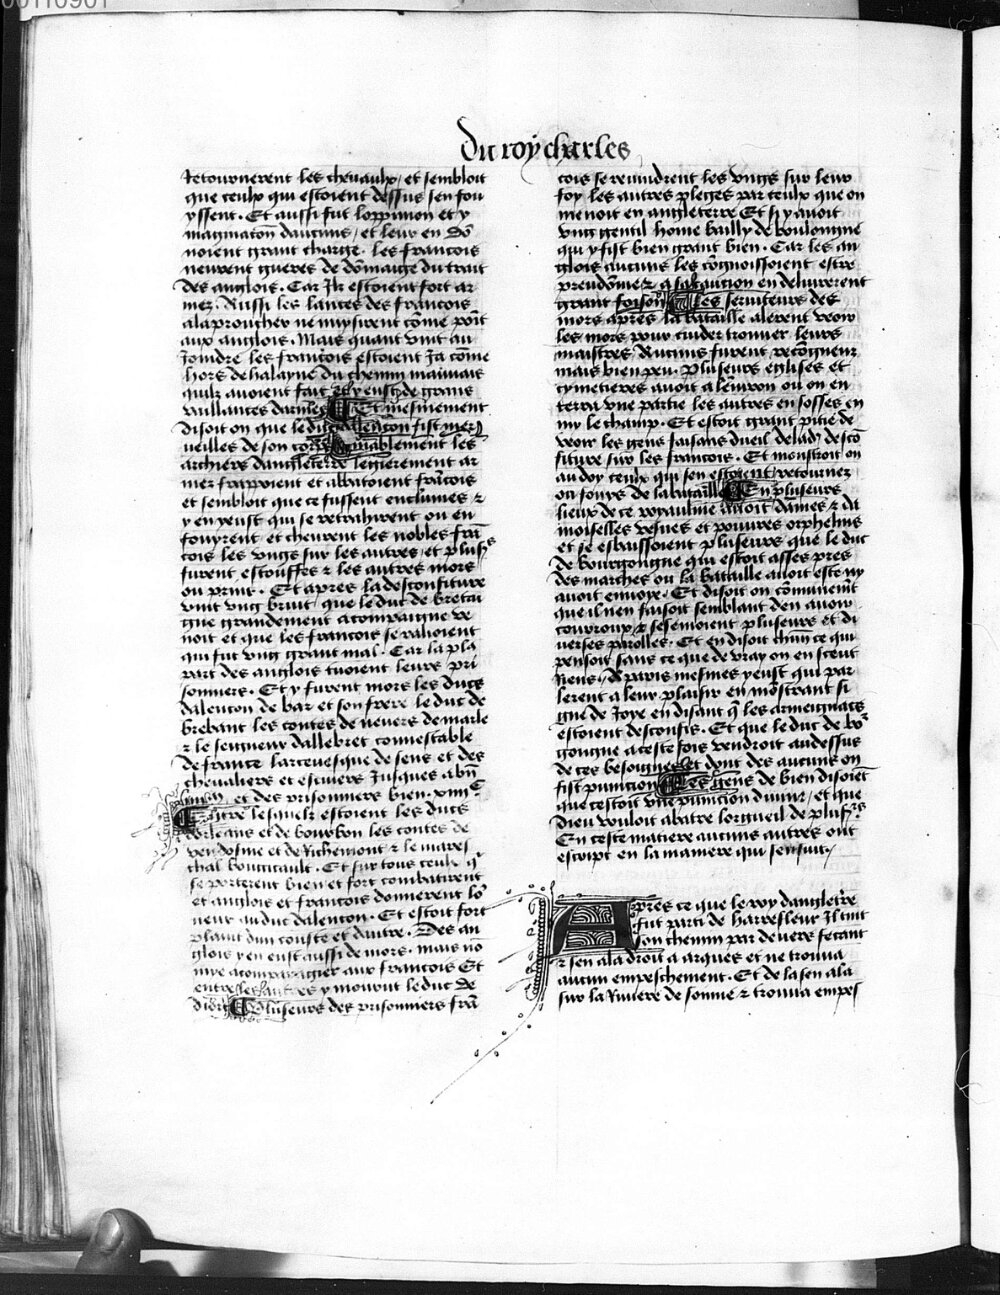 00110901
Du roy charles
retournerent les cheuaulx / et sembloit
que ceulx qui estoient dessus sen fou
yssent . Et aussi fut loppinion et y
maginacõn daucuns / et leur en dõ
noient grant charge . les francois
neurent gueres de dõmaige du trait
des anglois . Car ilz estoient fort ar
mez . Aussi les lances des francois
alaproucher ne nuysirent cõme põit
aux anglois . Mais quant vint au
Joindre les francois estoient Ja cõme
hors de halayne du chemin mauuais
quilz auoient fait et y eust de grans
vaillances darmes Et mesmement
disoit on que le duc dalencon fist mer
ueilles de son corps Semblablement les
archiers dangleterre legierement ar
mez frappoient et abbatoient francois
et sembloit que ce fussent enclumes et
y en eust qui se retrahirent ou en
fouyrent et cheurent les nobles fran
cois les vngs sur les autres / et plusrs
furent estouffes et les autres mors
ou prins . Et apres la desconfiture
vint vng bruit que le duc de bretai
gne grandement acompaigne ve
noit et que les francois se ralioient
qui fut vng grant mal . Car la plus
part des anglois tuoient leurs pri
sonniers . Et y furent mors les ducs
dalencon de bar et son frere le duc de
brebant les contes de neuers de marle
et le seigneur dallebret connestable
de france larceuesque de sens et des
cheualiers et escuiers Jusques a bñ
et des prisonniers bien . xiiiic
Entre lesquelz estoient les ducs
dorleans et de bourbon les contes de
vendosme et de Richemont et le mares
chal boucicault . Et sur tous ceulx q̃
se porterent bien et fort combatirent
et anglois et francois donnerent lõ
neur au duc dalencon . Et estoit fort
plaint dun couste et dautre . Des an
glois y en eust aussi de mors . mais nõ
mye acomparagier aux francois Et
entre les autres y mourut le duc de
diorc Pluseurs des prisonniers frañ
cois se rendirent les vngs sur leur
foy les autres pleges par ceulx que on
menoit en angleterre Et si y auoit
vng gentil hõme bailly de boulongne
qui y fist bien grant bien . Car les an
glois aucuns les cõgnoissoient estre
preudõme et a sa caution en deliurerent
grant foison Les seruiteurs des
mors apres la bataille alerent veoir
les mors pour cuider trouuer leurs
maistres / Aucuns furent recõgneuz
mais bien peu . pluseurs eglises et
cymetieres auoit a lenuiron ou on en
terra vne partie les autres en fosses en
my le champ . Et estoit grant pitie de
veoir les gens faisans dueil de lad descõ
fiture sur les francois . Et monstroit on
au doy ceulx qui sen estoient retournez
ou fouys de la bataille En pluseurs
lieux de ce royaulme auoit dames et da
moiselles vefues et pouures orphelins
et se esbaissoient pluseurs que le duc
de bourgongne qui estoit asses pres
des marches ou la bataille auoit este ny
auoit enuoye . Et disoit on cõmunemt
que il nen faisoit semblant den auoir
courroux et se semoient pluseurs et di
uerses parolles . Et en disoit chũn ce qui
pensoit sans ce que de vray on en sceut
Riens . A paris mesmes y eust qui par
lerent a leur plaisir en mõstrant si
gne de Joye en disant q̃ les armeignacs
estoient desconfis . Et que le duc de bo
gongne a ceste fois vendroit audessus
de ces besoignes Et dont des aucuns on
fist punicion Les gens de bien disoiet
que cestoit vne punicion diuine / et que
Dieu vouloit abatre lorgueil de plusrs
En ceste matiere aucuns autres ont
escript en la maniere qui sensuit .
Apres ce que le roy dangleterre
fut parti de harrefleur Il tint
son chemin par deuers fecant
et sen ala droit a arques et ne trouua
aucun empeschement . Et de la sen ala
sur la Riuiere de somme et trouua empes